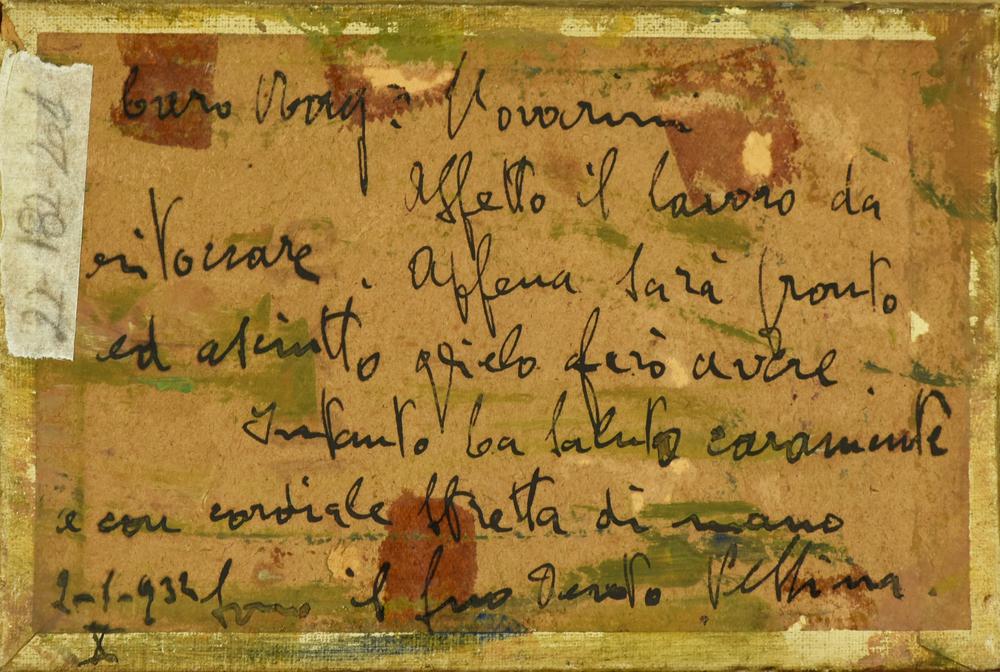 Caro Rag: Novarini
Aspetto il lavoro da
ritoccare. Appena sarà pronto
ed asciutto glielo farò avere.
Intanto La saluto caramente
e con cordiale stretta di mano
2-1-932 sono il suo devoto Pellini
X
22-182-201